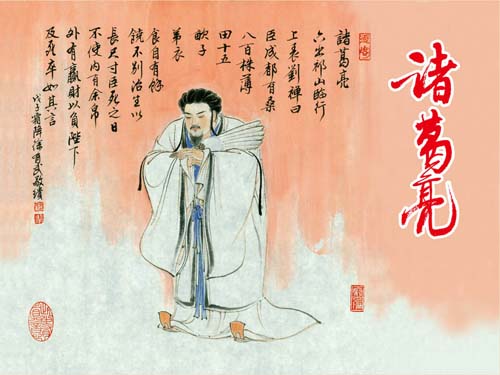 诸葛亮
諸葛亮
六出祁山臨行
上表劉禪曰
臣成都有桑
八百株薄
田十五
畝子
弟衣
食自有餘
饒不別治生以
長尺寸臣死之日
不使內有余帛
外有贏財以負陛下
及死卒如其言
戊子霜降